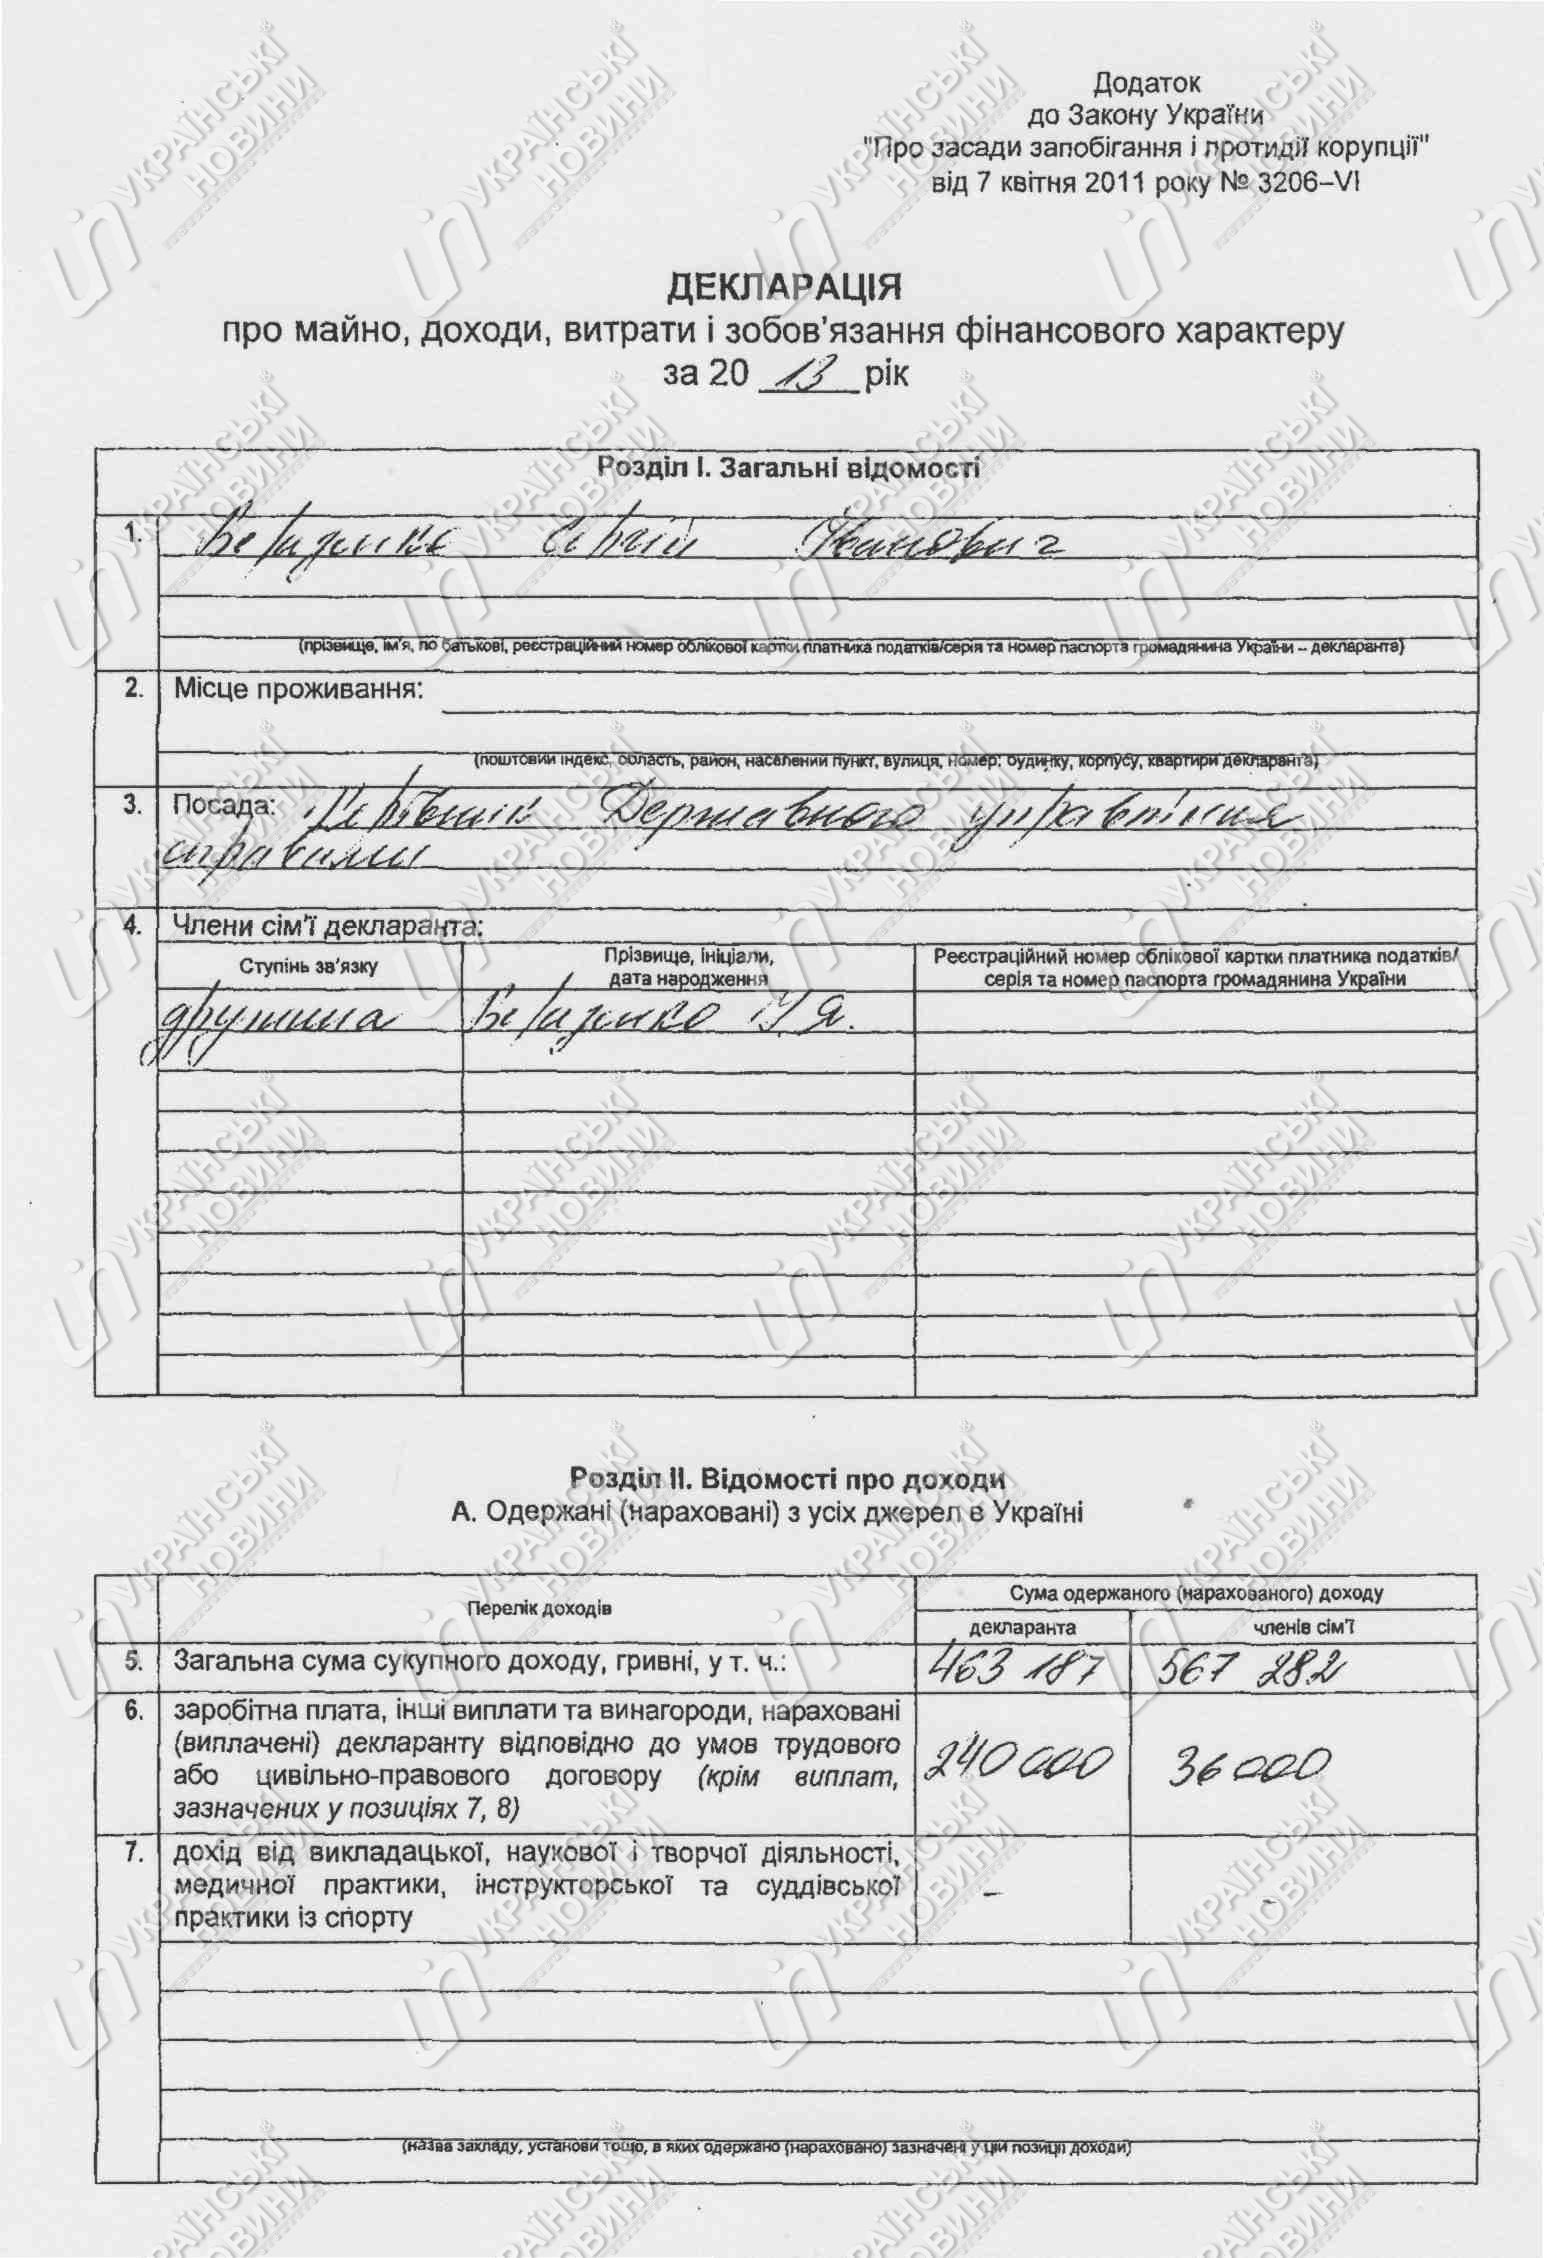 Додаток
до Закону України
"Про засади запобігання і протидії корупції"
від 7 квітня 2011 року № 3206–VI
ДЕКЛАРАЦІЯ
про майно, доходи, витрати і зобов'язання фінансового характеру
за 20 13 рік
Розділ I. Загальні відомості
1. Березенко Сергій Іванович
(прізвище, ім'я, по батькові, реєстраційний номер облікової картки платника податків/серія та номер паспорта громадянина України – декларанта)
2. Місце проживання:
(поштовий індекс, область, район, населений пункт, вулиця, номер: будинку, корпусу, квартири декларанта)
3. Посада: Керівник Державного управління
справами
4. Члени сім'ї декларанта:
Ступінь зв'язку
Прізвище, ініціали,
дата народження
Реєстраційний номер облікової картки платника податків/
серія та номер паспорта громадянина України
дружина Березенко Я.
Розділ II. Відомості про доходи
А. Одержані (нараховані) з усіх джерел в Україні
Перелік доходів
Сума одержаного (нарахованого) доходу
декларанта членів сім'ї
5. Загальна сума сукупного доходу, гривні, у т. ч.: 463 187 567 282
6. заробітна плата, інші виплати та винагороди, нараховані
(виплачені) декларанту відповідно до умов трудового
або цивільно-правового договору (крім виплат,
зазначених у позиціях 7, 8)
240 000 36 000
7. дохід від викладацької, наукової і творчої діяльності,
медичної практики, інструкторської та суддівської
практики із спорту
– –
(назва закладу, установи тощо, в яких одержано (нараховано) зазначені у цій позиції доходи)
УКРАЇНСЬКІ
НОВИНИ